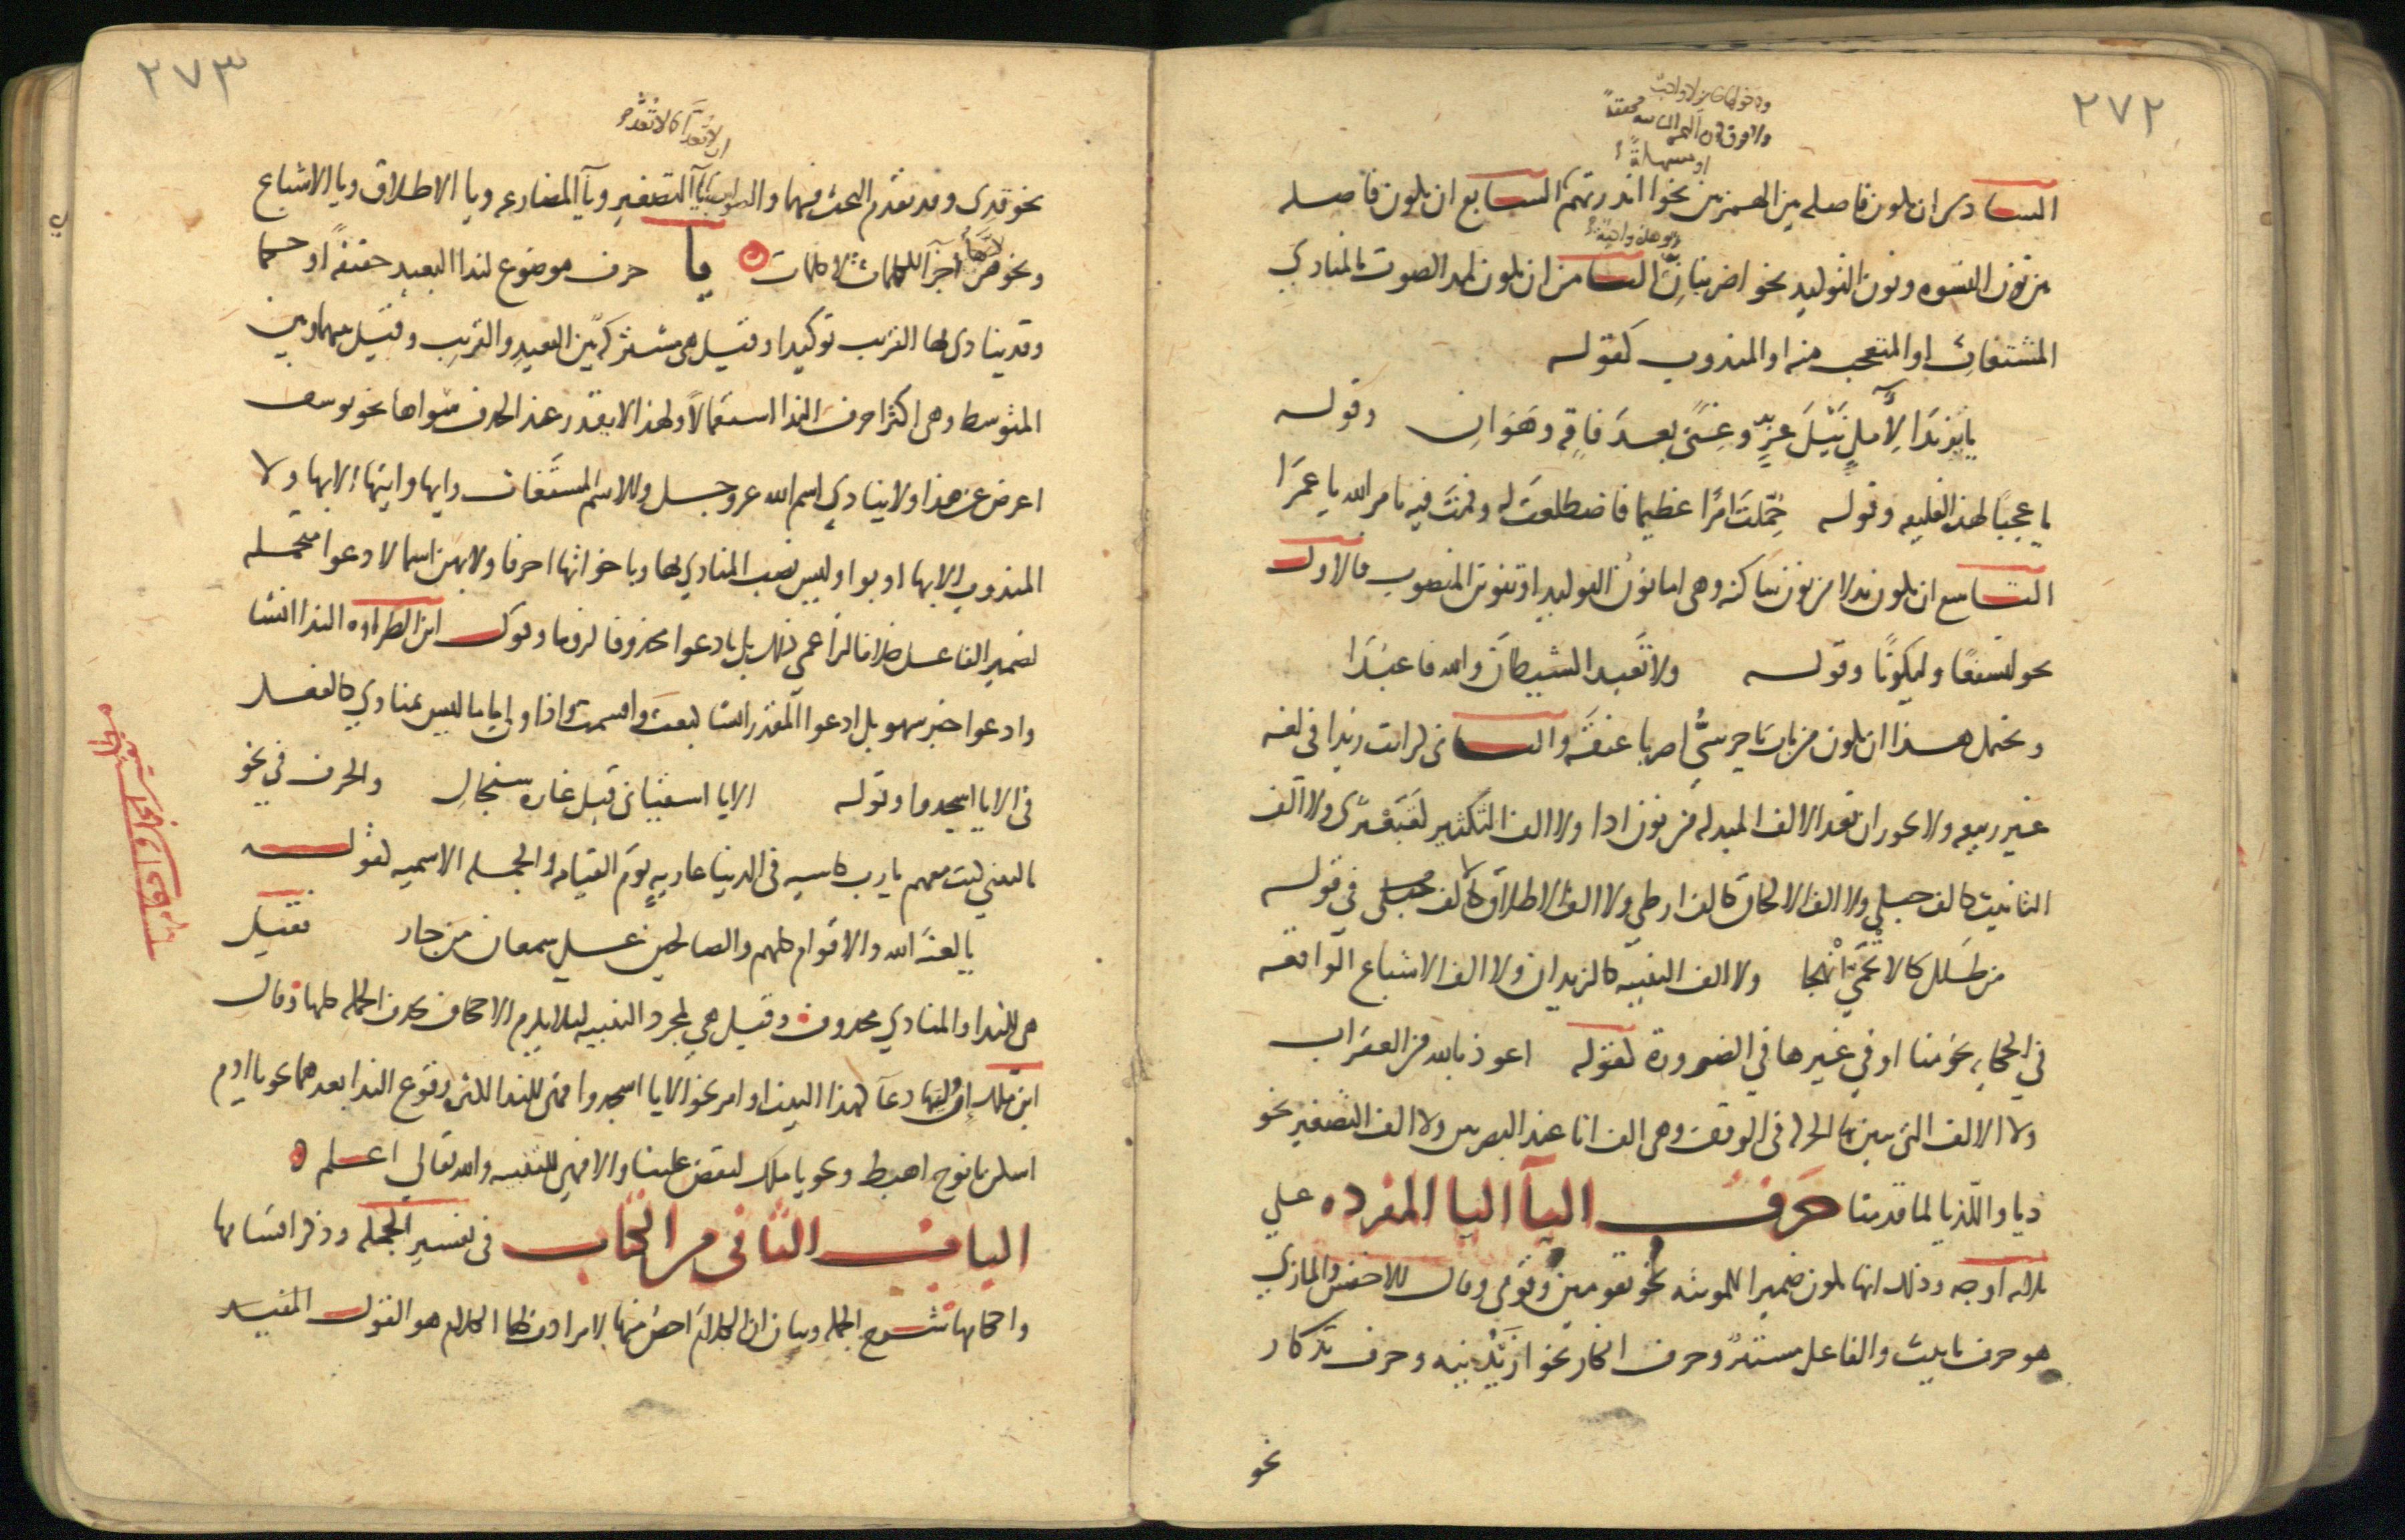 ٢٧٢
ودخولها جايز لا واجب
ولا فرق بين الهمزة الثانيه محققة
او مسهلة
السادس ان يكون فاصله بين الهمزتين نحو اانذرتهم السابع ان يكون فاصله
وهذه واجبة
بين نون النسوه ونون التوكيد نحو اضربنانّ الثامن ان يكون لمد الصوت بالمنادي
المستغاث او المتعجب منه او المندوب كقوله
يا يزيدَا لآمِلٍ نَيْلَ عزٍّ وغِنًى بعدَ فاقةٍ وهَوانِ وقوله
يا عجبًا لهذه الفليقه وقوله حُمّلتَ امرًا عظيما فاضطلعت له وقمتَ فيه بامر الله يا عمرَا
التاسع ان يكون بدلا من نون ساكنه وهي اما نون التوكيد او تنوين المنصوب فالاول
نحو لنسفعًا وليكونًا وقوله ولا تَعبد الشيطانَ والله فاعبدَا
ويحتمل هذا ان يكون من باب يا حرسيُّ اضربا عنقَه والثاني كرايت زيدا في لغه
غير ربيعه ولا يجوز ان تعد الالف المبدله من نون اذا ولا الف التكثير كقبعثرى ولا الف
التانيث كالف حبلي ولا الف الالحاق كالف ارطي ولا الف الاطلاق كالف في قوله
من طَلَلٍ كالاتحميّ انهجا ولا الف التثنيه كالزيدان ولا الف الاشباع الواقعه
في الحكايه نحو منا او في غيرها في الضرورة كقوله اعوذ بالله من العقراب
ولا الالف التي تبين بها الحركه في الوقف وهي الف انا عند البصريين ولا الف التصغير نحو
ذيا واللذيا لما قدمنا حَرفُ اليآ اليا المفرده علي
ثلاثه اوجه وذلك انها تكون ضميرا للمونثه نحو تقومين وقومي وقال الاخفش والمازني
هو حرف تانيث والفاعل مستتر وحرف انكار نحو ازيدنيه وحرف تذكار
نحو
٢٧٣
ان لا تُعدا كما لا تُعد
نحو قدي وقد تقدم البحث فيهما والصواب يآ التصغير ويآ المضارعه ويا الاطلاق ويا الاشباع
ونحوهن لانهن اجزآ للكلمات لا كلمات يا حرف موضوع لندا البعيد حقيقةً او حكما
وقد ينادى بها القريب توكيدا وقيل هي مشتركه بين البعيدِ والقريبِ وقيل بينهما وبين
المتوسط وهي اكثر احرف الندا استعمالاً ولهذا لا يقدر عند الحذف سواها نحو يوسف
اعرض عن هذا ولا ينادي اسم الله عز وجل والاسم المستغاث وايها وايتها الا بها ولا
المندوب الا بها او بوا وليس نصب المنادي بها وباخواتها احرفا ولا بهن اسما لادعوا متحمله
لضمير الفاعل خلافا لزاعمي ذلك بل بادعوا محذوفا لزوما وقول ابن الطراوه الندا انشا
وادعوا خبر سهو بل ادعوا المقدر انشا كبعتُ واقسمت واذا ولي يا ما ليس بمنادي كالفعل
في الا يا اسجدوا وقوله الا يا اسقياني قبل غاره سنجالِ والحرف في نحو
يا ليتني كنت معهم يا رب كاسيه في الدنيا عاريهٍ يوم القيامه والجمله الاسميه كقوله
يا لعنةُ الله والاقوام كلهم والصالحين على سمعان من جار فقيل
هي للندا والمنادي محذوف وقيل هي لمجرد التنبيه ليلا يلزم الاحجاف بحذف الجمله كلها وقال
ابن مالك ان وليها دعآ كهذا البيت او امر نحو الا يا اسجدوا فهي للندا لكثره وقوع الندا بعدهما نحو يا ادم
اسكن يا نوح اهبط ونحو يا مالك ليقض علينا والا فهي للتنبيه والله تعالى اعلم
الباب الثاني من الكتاب في تفسير الجمله وذكر اقسامها
واحكامها شرح الجمله وبيان ان الكلامَ اخصُّ منها لا مرادف لها الكلام هو القول المفيد